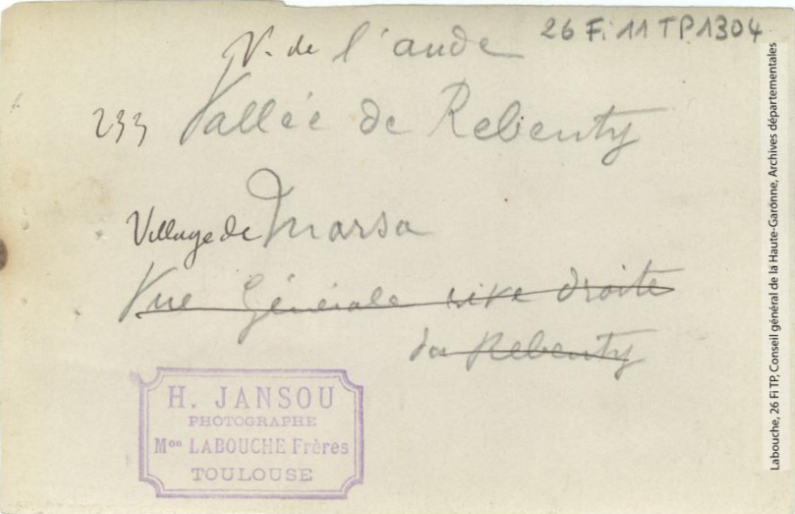 26 Fi 11 TP1304
V. de l'aude
233 Vallée de Rebenty
Village de Marsa
Vue Générale rive droite
du Rebenty
H. JANSOU
PHOTOGRAPHE
Mon LABOUCHE Frères
TOULOUSE
Labouche, 26 Fi TP, Conseil général de la Haute-Garonne, Archives départementales